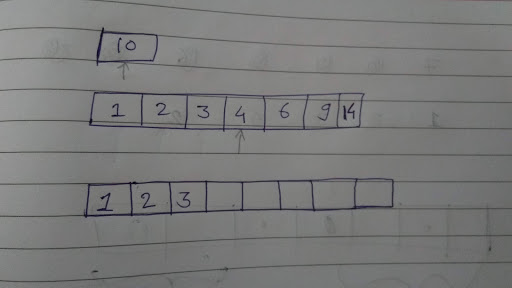 10
1 2 3 4 6 9 14
1 2 3